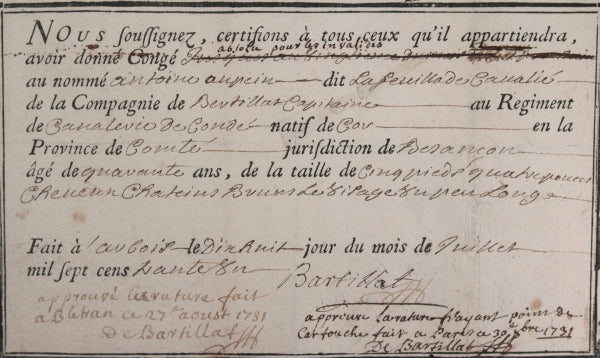 Nous soussignez, certifions à tous ceux qu'il appartiendra,
absolu pour les invalides
avoir donné Congé
au nommé antoine aupein dit Lafeuillade Cavalié
de la Compagnie de Bertillat Capitaine au Regiment
de Cavalerie De Condé natif de Cor en la
Province de Comté jurisdiction de Besançon
âgé de quarante ans, de la taille de Cinq pieds quatre pouces
Cheveux Chatains Bruns Le Visage un peu Long
Fait à le Dixhuit jour du mois de Juillet
mil sept cens trante un
Bartillat
approuvé la rature fait
a Blehan ce 27e aoust 1731
De Bartillat
aprouve la rature n'ayant point de
Cartouche fait a Paris ce 30e 8bre 1731
De Bartillat